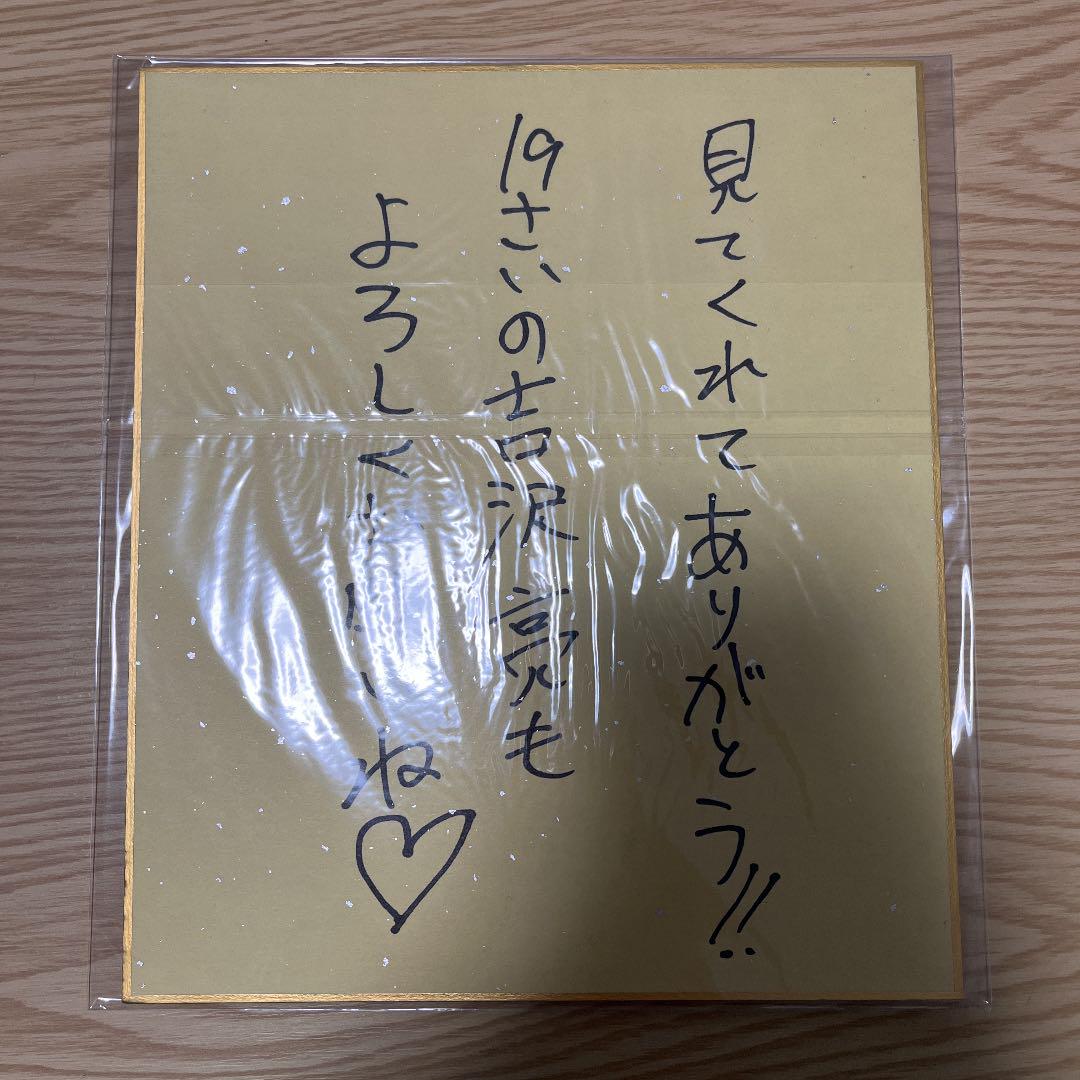 見てくれてありがとう!!
19さいの吉沢亮も
よろしくおねがいね♡